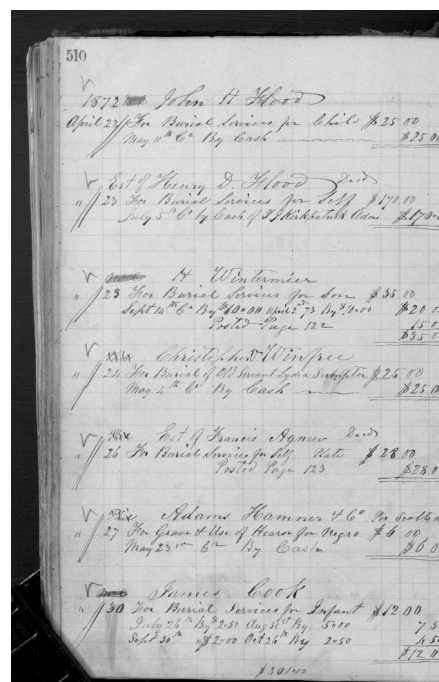 510
1872 John H Flood
April 22 For Burial Services for Child $25 00
May 11th Cr By Cash $25.00
Est of Henry D. Flood Decd
" 23 For Burial Services for Self $170.00
July 5th Cr by Cash of Kirkpatrick Adm $170
H Wintermier
" 23 For Burial Services for Son $35 00
Sept 14th Cr By $10.00 April 2nd 73 By $10.00 $20 0
Posted Page 122 15 0
$35 00
Christopher Winfree
" 24 For Burial of Old Servant Lydia Sumpter $25 00
May 4th Cr By Cash $25 0
Est of Francis Agnew Decd
" 26 For Burial Services for Self $28 00
Posted Page 123 $28 0
Adams Hamner & Co Per Scott
" 27 For Grave & Use of Hearse for Negro $6 00
May 23rd Cr By Cash $6 0
James Cook
" 30 For Burial Services for Infant $12 00
July 26th By 2.50 Aug 31st By 5.00 7 5
Sept 30th " $2.00 Oct 26th By 2.50 4 5
$12 0
$301.00